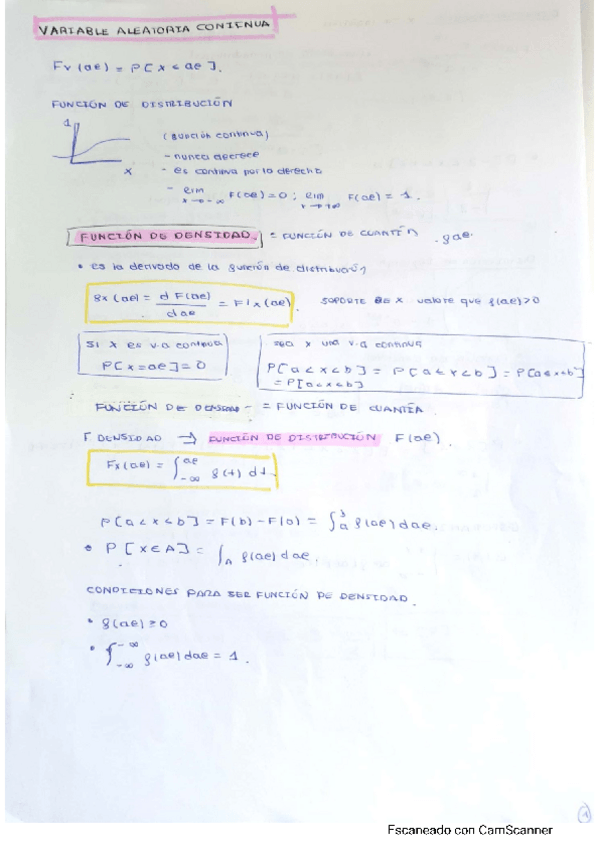 VARIABLE ALEATORIA CONTINUA
Fx(ae) = P[X ≤ ae].
FUNCIÓN DE DISTRIBUCIÓN
1
(función continua)
- nunca decrece
X - es continua por la derecha
- lim x→-∞ F(ae)=0 ; lim x→+∞ F(ae) = 1.
FUNCIÓN DE DENSIDAD. = FUNCIÓN DE CUANTÍA fae.
• es la derivada de la función de distribución
fx(ae) = d F(ae) / dae = F'x(ae). SOPORTE DE X valore que f(ae)>0
Si X es v.a continua
P[X=ae]=0
sea X una v.a continua
P[a<x<b] = P[a≤x<b] = P[a≤x≤b]
= P[a<x≤b]
FUNCIÓN DE DENSIDAD = FUNCIÓN DE CUANTÍA
F DENSIDAD → FUNCIÓN DE DISTRIBUCIÓN F(ae).
Fx(ae) = ∫_{-∞}^{ae} f(t) dt.
P[a<x<b] = F(b)-F(a) = ∫_a^b f(ae)dae.
• P[X∈A] = ∫_A f(ae)dae.
CONDICIONES PARA SER FUNCIÓN DE DENSIDAD.
• f(ae)≥0
• ∫_{-∞}^{-∞} f(ae)dae = 1.
1
Escaneado con CamScanner